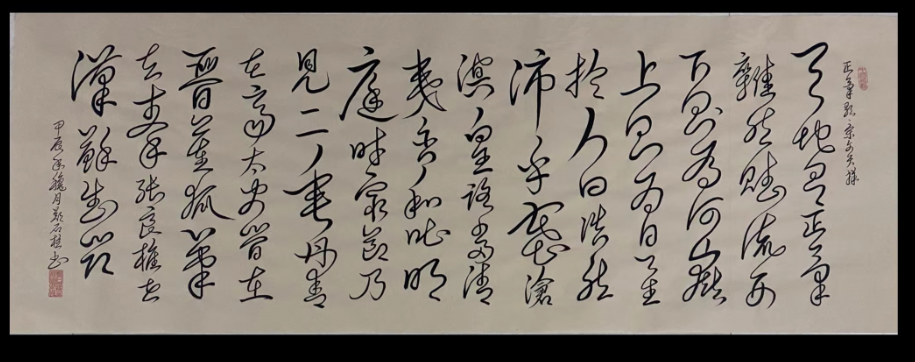 正氣歌 宋 文天祥
天地有正氣
雜然賦流形
下則為河嶽
上則為日星
於人曰浩然
沛乎塞滄
溟皇路當清
夷含和吐明
庭時窮節乃
見一一垂丹青
在齊太史簡在
晉董狐筆
在秦張良椎在
漢蘇武節
甲辰年臘月石桂書